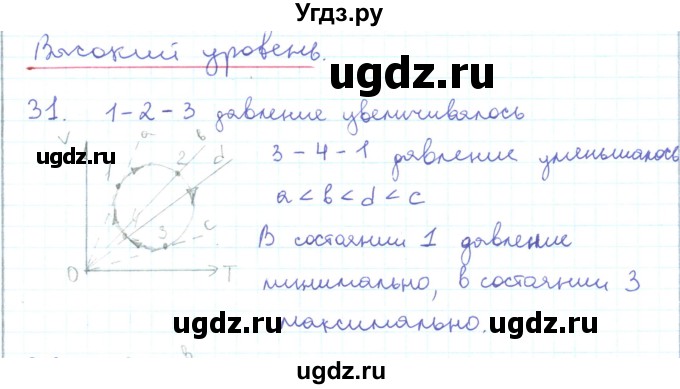 Угдз.ру
Высокий уровень.
ugdz.ru
31. 1-2-3 давление увеличивалось
ugdz.ru
V a b
1 2 d
3-4-1 давление уменьшалось
ugdz.ru
a < b < d < c
4
3 c
В состоянии 1 давление
0 T
минимально, в состоянии 3
ugdz.ru ugdz.ru
максимально.
ugdz.ru